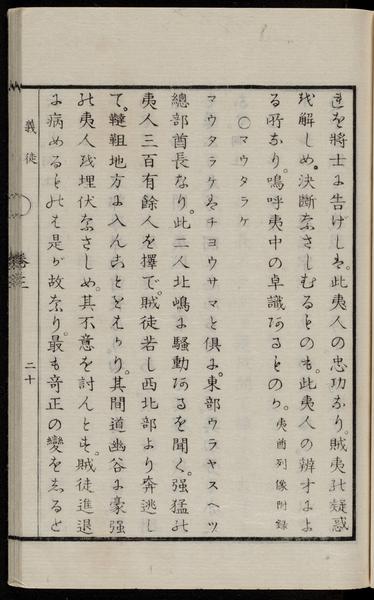 逆を將士に告げしは。此夷人の忠功なり。賊夷此疑惑
を解しめ。決斷なさしむるもの也。此夷人の辨才によ
る所なり。嗚呼夷中の卓識あるものり。夷酋列像附錄
〇マウタラケ
マウタラケはチヨウサマと俱に。東部ウラヤスヘツ
總部酋長なり。此二人北嶋に騷動あるを聞く。强猛の
夷人三百有餘人を擇で。賊徒若し西北部より奔逃し
て。韃靼地方に入んことをはかり。其間道幽谷に豪强
の夷人を埋伏なさしめ。其不意を討んとす。賊徒進退
に病めるものは是が故なり。最も奇正の變をしると
義徒
二十